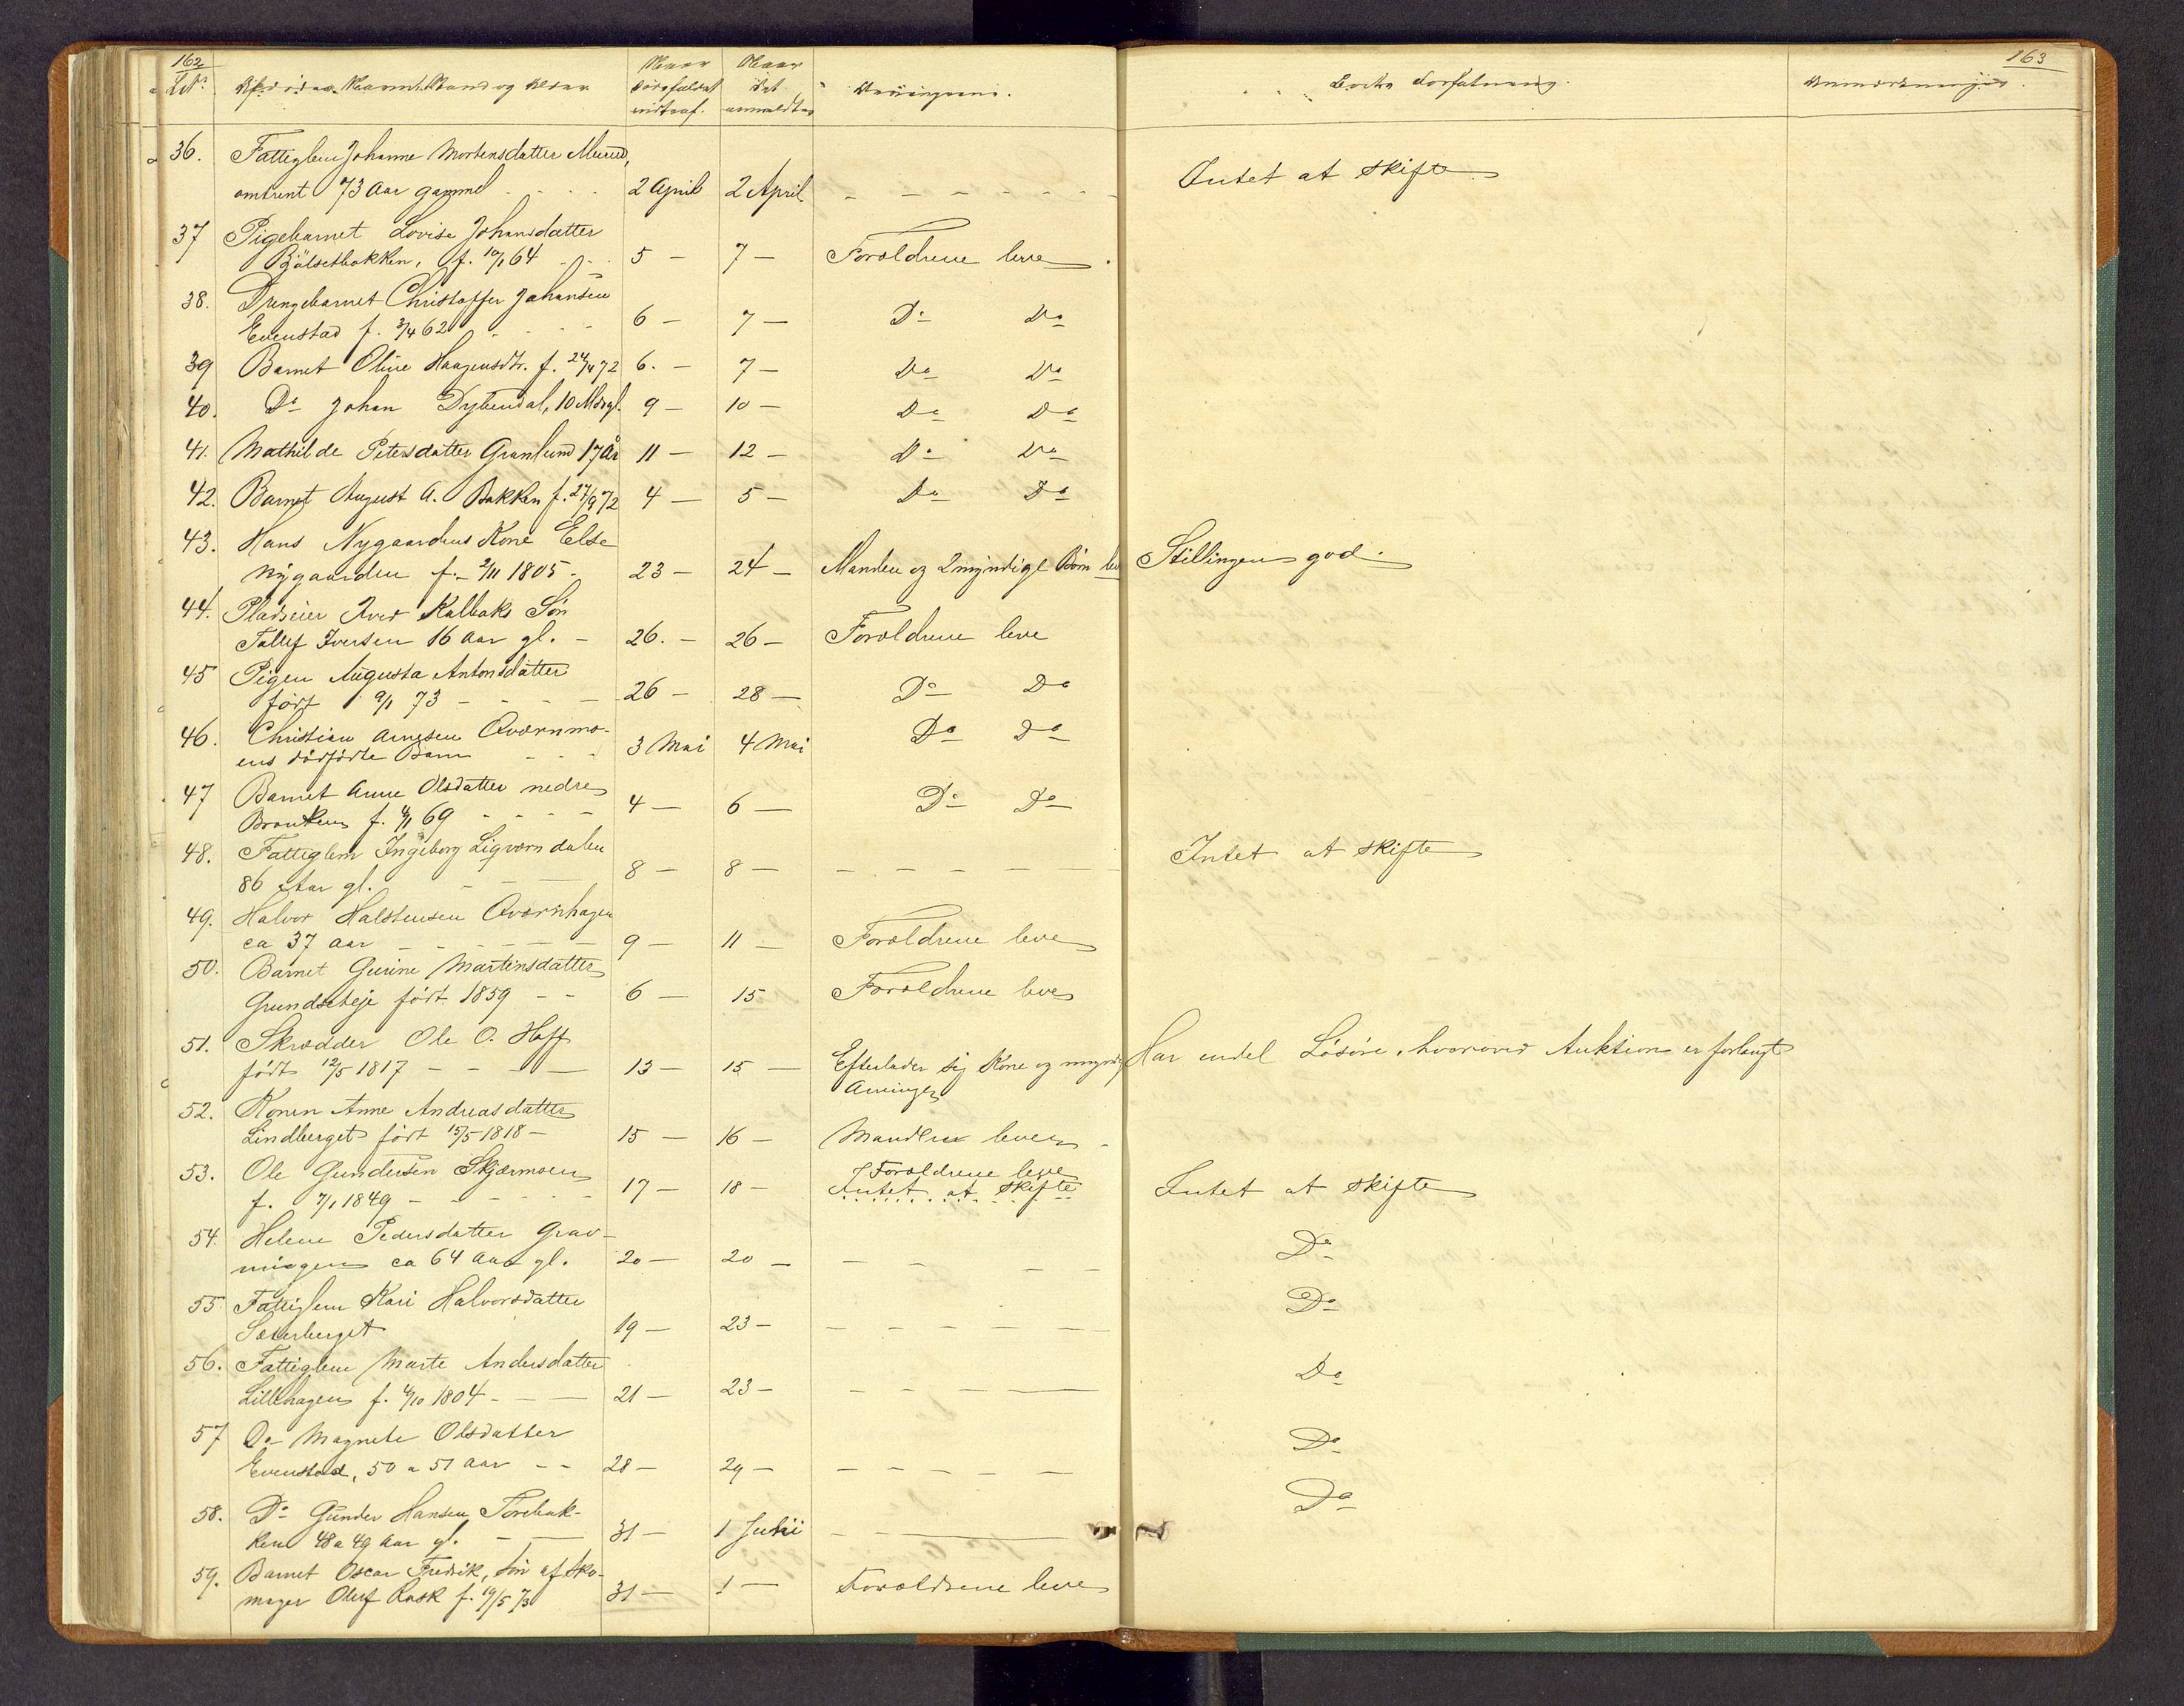 162
163
L.No.
Afdødes Navn, Stand og Alder
Naar Dødsfaldet indtraf.
Naar det anmeldtes
Arvingerne.
Boets Forfatning.
Anmærkninger.
36. Fattiglem Johanne Mortensdatter
omtrent 73 Aar gammel 2 April 2 April Intet at skifte
37 Pigebarnet Lovise Johansdatter
Bjølsetbakken, f. 10/1 64 5 — 7 — Forældrene leve
38. Drengebarnet Christoffer Johansen
Evenstad f. 3/4 62 6 — 7 — Do Do
39 Barnet Oline Haagensdtr. f. 24/4 72 6. — 7 — Do Do
40. Do Johan Dybendal, 10 Mdr gl. 9 — 10 — Do Do
41. Mathilde Petersdatter Granlund 17 År 11 — 12 — Do Do
42. Barnet August A. Bakken f. 27/9 72 4 — 5 — Do Do
43. Hans Nygaardens Kone Else
Nygaarden f. 2/11 1805 — 23 — 24 — Manden og 2 myndige Børn lev Stillingen god.
44. Pladseier Iver Kalbaks Søn
Tollef Iversen 16 Aar gl. — 26. — 26 — Forældrene leve
45 Pigen Augusta Antonsdatter
født 9/1 73 — 26 — 28 — Do Do
46. Christian Arnesen Qværnmo-
ens dødfødte Barn 3 Mai 4 Mai Do Do
47 Barnet Anne Olsdatter nedre
Brænken f. 4/1 69 4 — 6 — Do Do
48. Fattiglem Ingeborg Ligværndalen
86 Aar gl. 8 — 8 — Intet at skifte
49. Halvor Halstensen Qværnhagen
ca 37 Aar 9 — 11 — Forældrene leve
50. Barnet Gurine Martinsdatter
Grundseteje født 1859 — 6 — 15 Forældrene leve
51. Skrædder Ole O. Hoff
født 12/5 1817 — 13 — 15 — Efterlader sig Kone og myndig Har endel Løsøre, hvorover Auktion er forlangt
Arvinger
52. Konen Anne Andreasdatter
Lindberget født 15/5 1818 — 15 — 16 — Manden lever
53. Ole Gundersen Skjærmoen Forældrene leve
f. 7/1 1849 — 17 — 18 — Intet at skifte Intet at skifte
54. Helene Pedersdatter Grav-
ca 64 Aar gl. 20 — 20 — Do
55. Fattiglem Kari Halvorsdatter
Sæterberget 19 — 23 — Do
56. Fattiglem Marte Andersdatter
Lillehagen f. 4/10 1804 — 21 — 23 — Do
57 Do Magnete Olsdatter
Evenstad, 50 a 51 Aar — 28 — 29 — Do
58. Do Gunder Hansen Torebak-
ken 48 a 49 Aar gl. 31 — 1 Juni Do
59. Barnet Oscar Fredrik, Søn af Sko-
mager Oluf Rask f. 19/5 73 31 — 1 — Forældrene leve